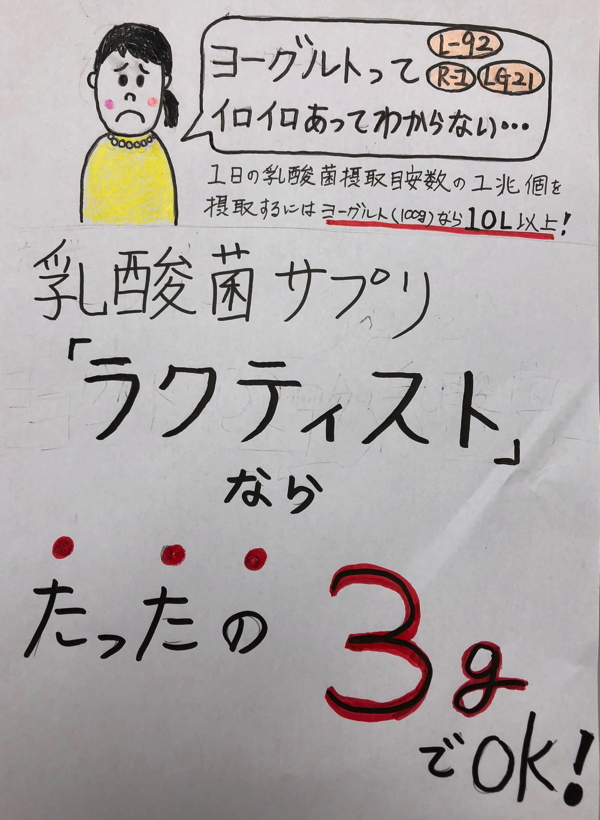 ヨーグルトって L-92 R-1 LG21
イロイロあってわからない…
1日の乳酸菌摂取目安数の1兆個を
摂取するにはヨーグルト(100g)なら10L以上!
乳酸菌サプリ
「ラクティスト」
なら
たったの 3g
でOK!